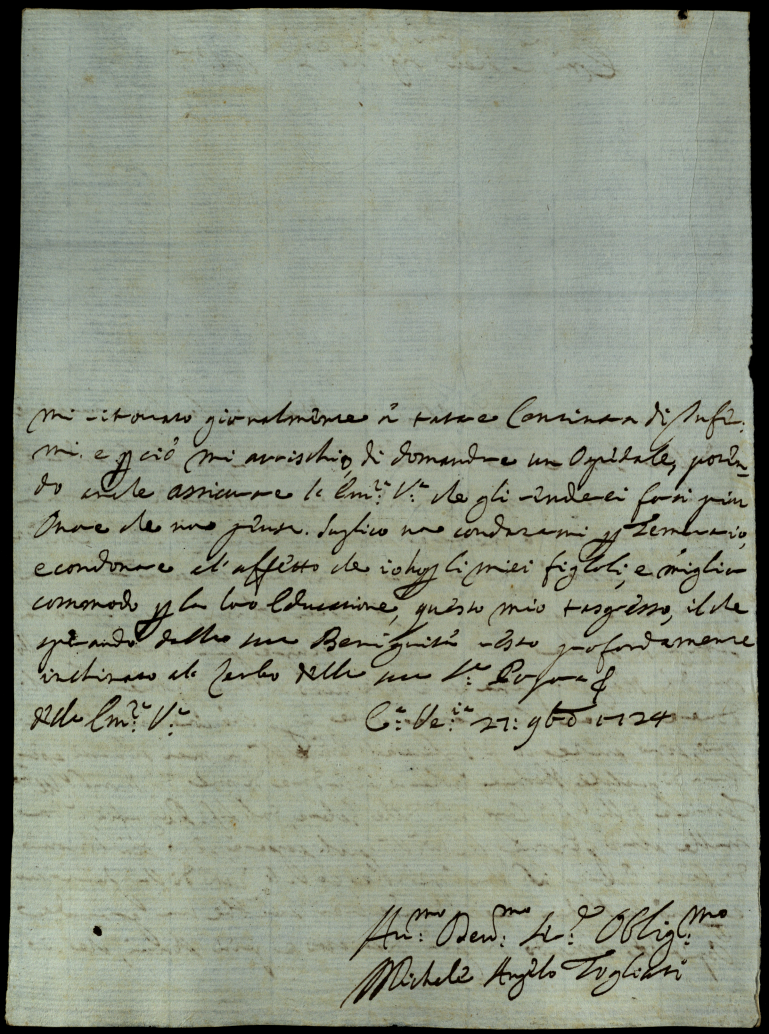 mi ritrovato giornalmente à tata e Centinara di Infer:
mi. e p ciò mi arrischio, di domandare un Ospidale, poten_
do anche assicurare la Em:za V:a che gli renderei forsi piu
Onore che non pensa. Suplico non condanarmi p Temerario,
e condonare al'affetto che io ho p li miei figloli, e miglior
commodo p la loro Educazione, questo mio trasgresso, il che
sperando dalla sua Benignità resto profondamente
inchinato al Lembo della sua S:a Porpora
della Em:za V:a
21: 9bre 1724
Hu:mo Devo:mo Se:re Oblig:mo
Michele Angelo Togliati